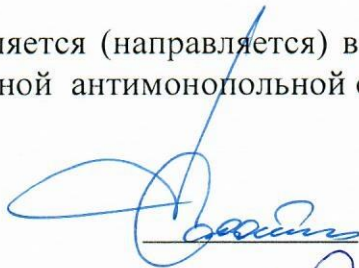 ляется (направляется) в
ной антимонопольной